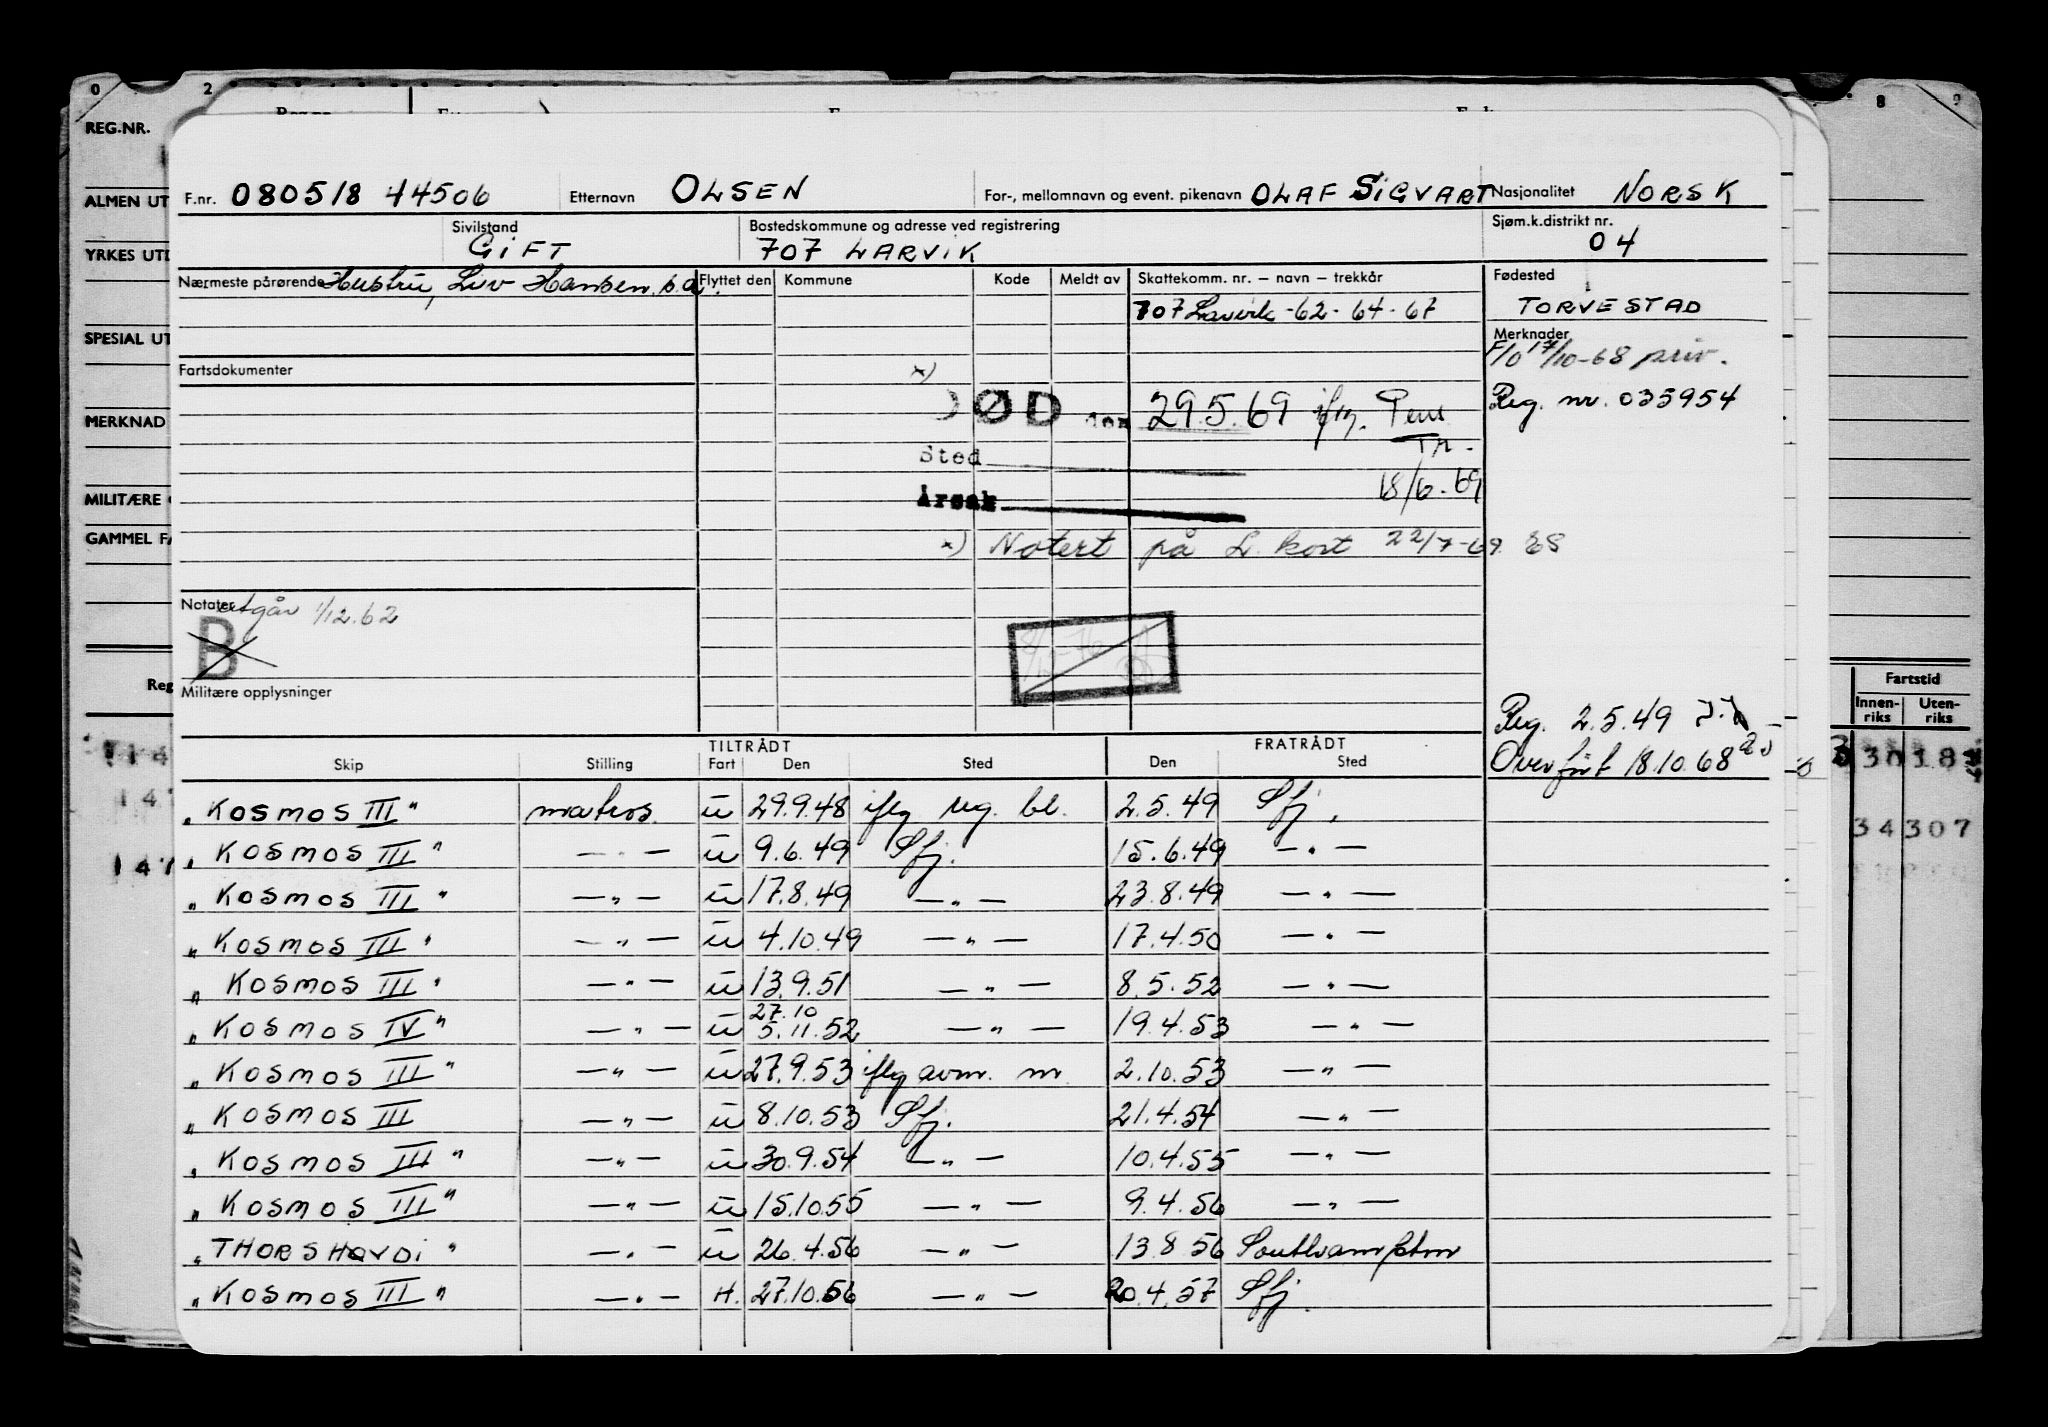 0 2 8 9
REG.NR.
ALMEN UT
YRKES UTD
SPESIAL UT
MERKNAD
MILITÆRE
GAMMEL FA
Reg
Fartstid
Innen-riks Uten-riks
34307
F.nr. 080518 44506 Etternavn OLSEN For-, mellomnavn og event. pikenavn OLAF SIGVART Nasjonalitet NORSK
Sivilstand GIFT Bostedskommune og adresse ved registrering 707 LARVIK Sjøm.k.distrikt nr. 04
Nærmeste pårørende Hustru, Liv Hansen s.a. Flyttet den Kommune Kode Meldt av Skattekomm. nr. – navn – trekkår Fødested
707 Larvik -62-64-67 TORVESTAD
Merknader
F/O 17/10-68 priv.
Fartsdokumenter
x)
DØD den 29.5.69 iflg. Pens Tr. Reg. nr. 035954
Sted
18/6-69
Årsak
x) Notert på L. kort 22/7-69
Notater utgår 1/12.62
B
Militære opplysninger
Reg. 2.5.49
Overført 18.10.68
TILTRÅDT FRATRÅDT
Skip Stilling Fart Den Sted Den Sted
"KOSMOS III" matros. u 29.9.48 iflg reg. bl. 2.5.49 Sfj.
"KOSMOS III" — " — u 9.6.49 Sfj. 15.6.49 — " —
"KOSMOS III" — " — u 17.8.49 — " — 23.8.49 — " —
"KOSMOS III" — " — u 4.10.49 — " — 17.4.50 — " —
"KOSMOS III" — " — u 13.9.51 — " — 8.5.52 — " —
27.10
"KOSMOS IV" — " — u 5.11.52 — " — 19.4.53 — " —
"KOSMOS III" — " — u 27.9.53 iflg avm. m. 2.10.53 — " —
"KOSMOS III — " — u 8.10.53 Sfj. 21.4.54 — " —
"KOSMOS III" — " — u 30.9.54 — " — 10.4.55 — " —
"KOSMOS III" — " — u 15.10.55 — " — 9.4.56 — " —
"THORSHAVDI" — " — u 26.4.56 — " — 13.8.56 Southampton
"KOSMOS III" — " — H. 27.10.56 — " — 20.4.57 Sfj.